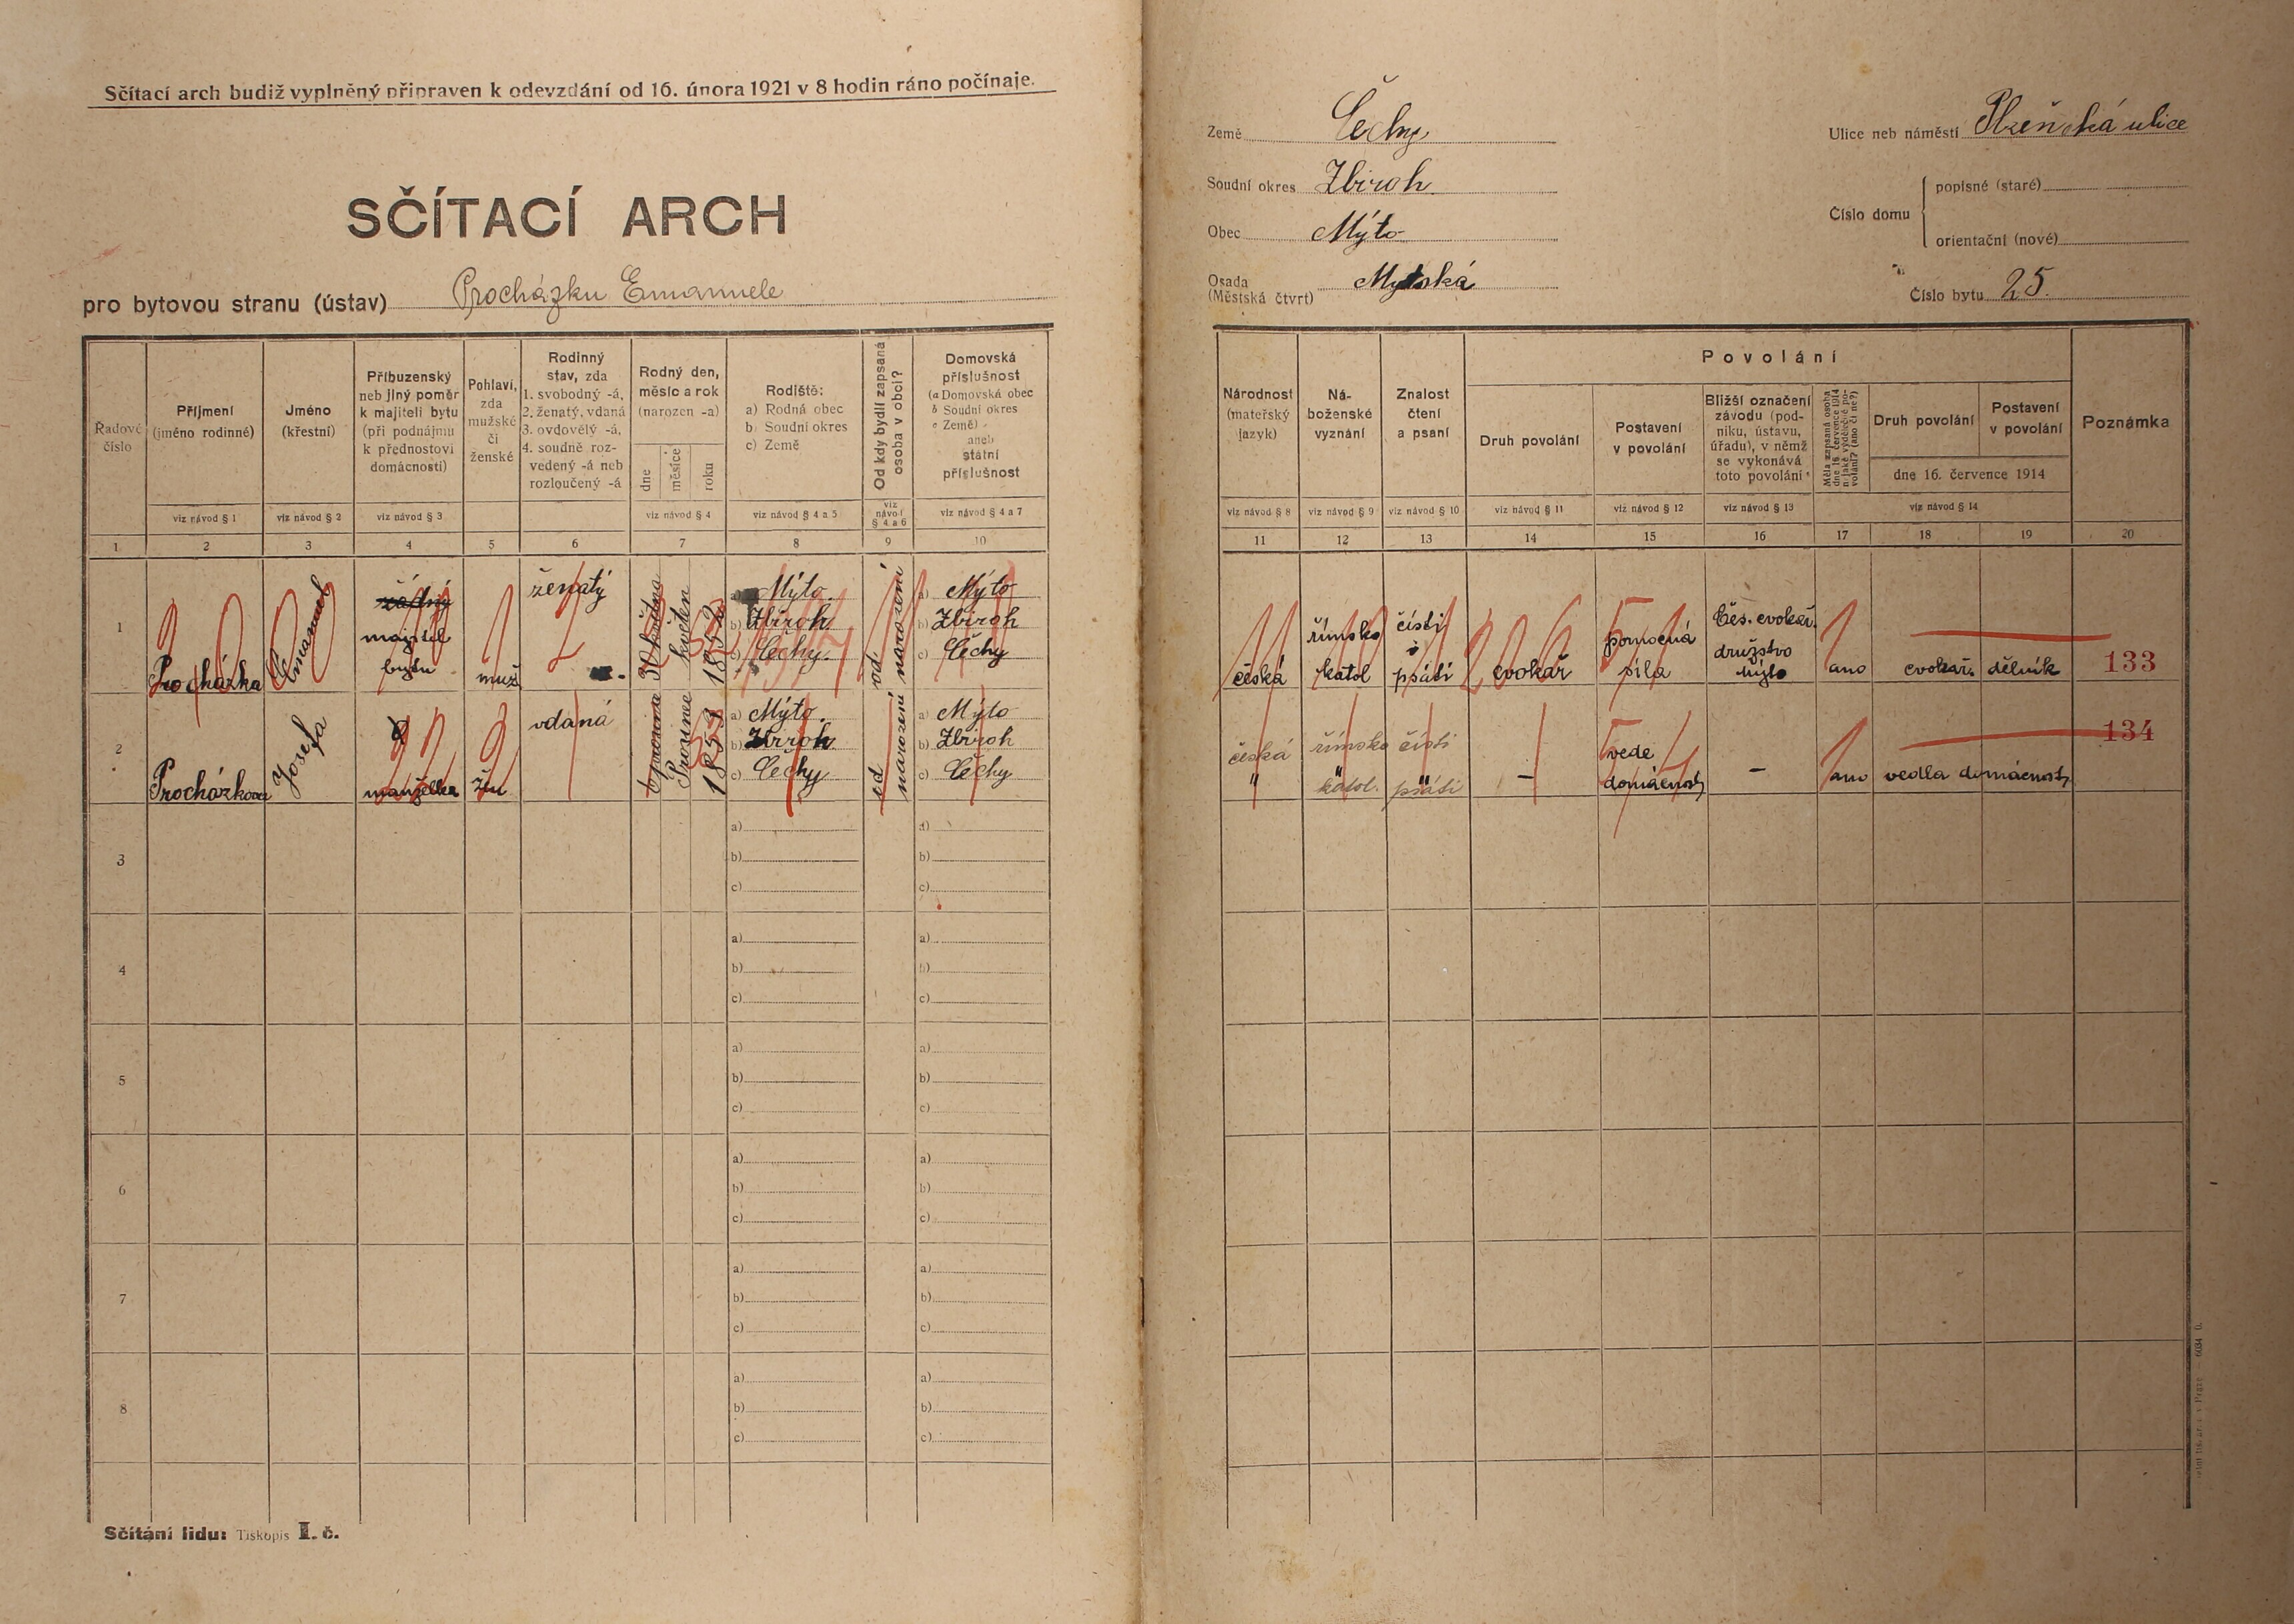 Sčítací arch budiž vyplněný připraven k odevzdání od 16. února 1921 v 8 hodin ráno počínaje.
SČÍTACÍ ARCH
pro bytovou stranu (ústav) Procházku Emanuele
Řadové číslo
Příjmení
(jméno rodinné)
Jméno
(křestní)
Příbuzenský
neb jiný poměr
k majiteli bytu
(při podnájmu
k přednostovi
domácnosti)
Pohlaví,
zda
mužské
či
ženské
Rodinný
stav, zda
1. svobodný -á,
2. ženatý, vdaná
3. ovdovělý -á,
4. soudně roz-
vedený -á neb
rozloučený -á
Rodný den,
měsíc a rok
(narozen -a)
dne
měsíce
roku
Rodiště:
a) Rodná obec
b) Soudní okres
c) Země
Od kdy bydlí zapsaná
osoba v obci?
Domovská
příslušnost
(a Domovská obec
b Soudní okres
c Země)
aneb
státní
příslušnost
viz návod § 1
viz návod § 2
viz návod § 3
viz návod § 4
viz návod § 4 a 5
viz
návod
§ 4 a 6
viz návod § 4 a 7
1 2 3 4 5 6 7 8 9 10
1
Procházka
Emanuel
žádný
majitel
bytu
muž
ženatý
květen
1852
a) Mýto
b) Zbiroh
c) Čechy
od narození
a) Mýto
b) Zbiroh
c) Čechy
2
Procházková
Josefa
manželka
vdaná
Prosinec
a) Mýto
b) Zbiroh
c) Čechy
od narození
a) Mýto
b) Zbiroh
c) Čechy
3
a) a)
b) b)
c) c)
4
a) a)
b) b)
c) c)
5
a) a)
b) b)
c) c)
6
a) a)
b) b)
c) c)
7
a) a)
b) b)
c) c)
8
a) a)
b) b)
c) c)
Sčítání lidu: Tiskopis I. č.
Země Čechy
Soudní okres Zbiroh
Obec Mýto
Osada
(Městská čtvrť) Mýtská
Ulice neb náměstí Plzeňská ulice
Číslo domu
popisné (staré)
orientační (nové)
Číslo bytu 25.
Národnost
(mateřský
jazyk)
Ná-
boženské
vyznání
Znalost
čtení
a psaní
Povolání
Druh povolání
Postavení
v povolání
Bližší označení
závodu (pod-
niku, ústavu,
úřadu), v němž
se vykonává
toto povolání
Měla zapsaná osoba
dne 16. července 1914
nějaké výdělečné po-
volání? (ano či ne?)
Druh povolání
Postavení
v povolání
dne 16. července 1914
Poznámka
viz návod § 8
viz návod § 9
viz návod § 10
viz návod § 11
viz návod § 12
viz návod § 13
viz návod § 14
11 12 13 14 15 16 17 18 19 20
česká
římsko
katol
čísti
i
psáti
cvokař
pomocná
síla
Čes. cvokař.
družstvo
Mýto
ano
cvokař.
dělník
133
česká
"
římsko
katol.
čísti
psáti
–
vede
domácnost
–
ano
vedla domácnost
134